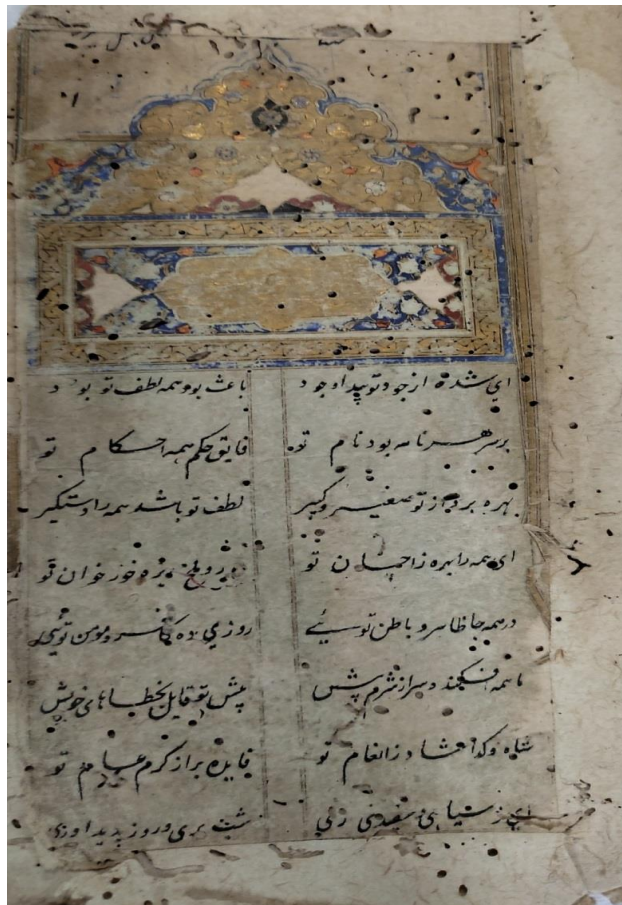 ای شده از جود تو پیدا وجود باعث بود همه لطف تو بود
بر سر هر نامه بود نام تو فایق حکم همه احکام تو
بهره بر از تو صغیر و کبیر لطف تو باشد همه را دستگیر
ای همه را بهره ز احسان تو ریزه خور خوان تو
در همه جا ظاهر و باطن توئی روزی ده کافر و مومن توئی
ما همه افکنده سر از شرم پیش پیش تو قایل بخطاهای خویش
شاه و گدا شاد ز انعام تو فایده بر از کرم عام تو
ای ز سیاهی و سفیدی شب بری و روز پدید آوری